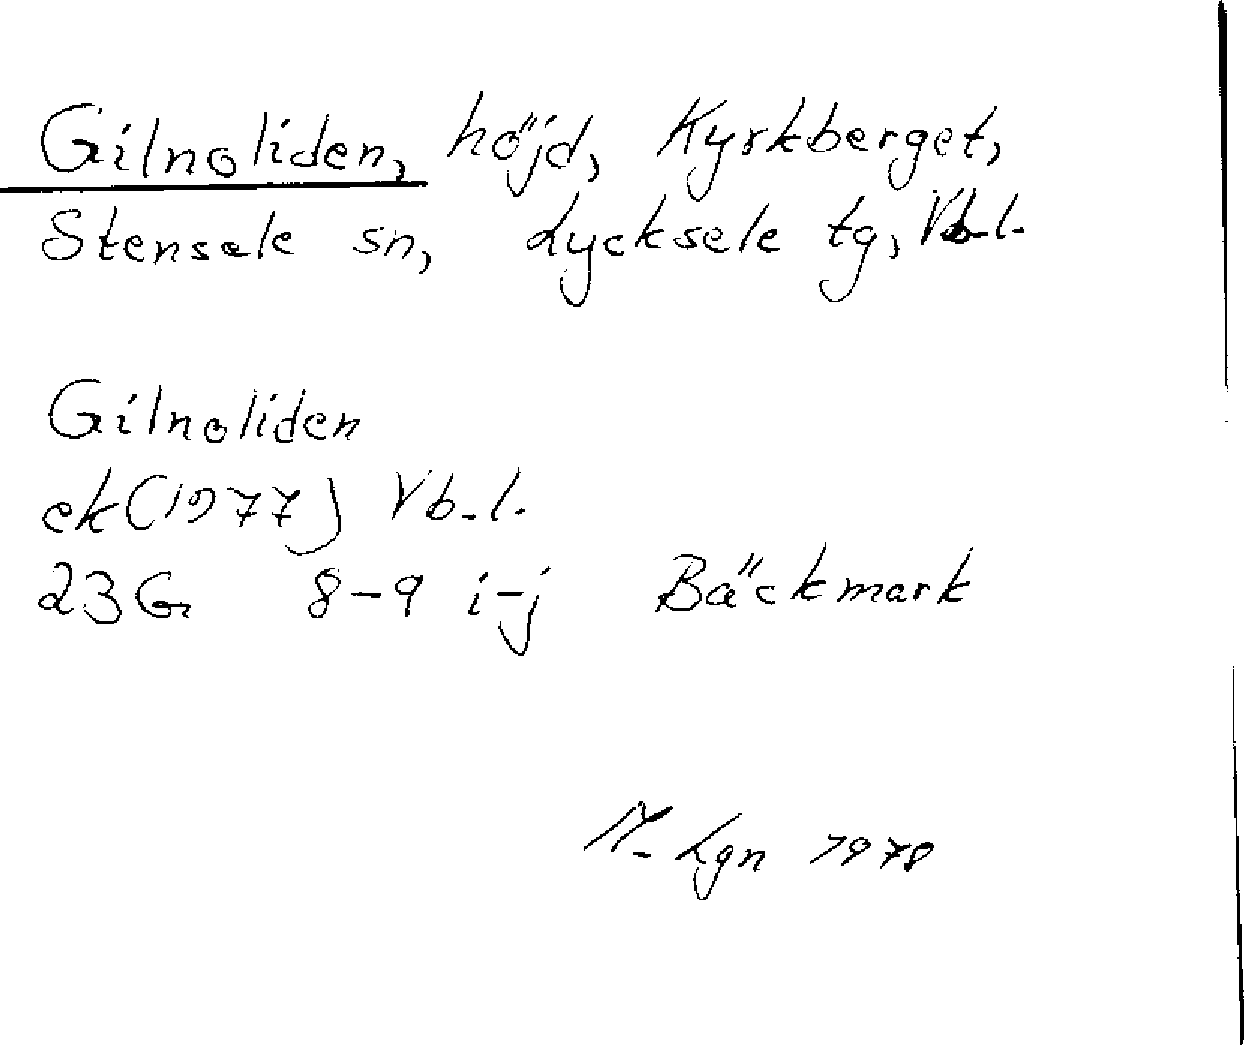 Gilnoliden, höjd, Kyrkberget,
Stensele sn, Lycksele tg, Vb.l.
Gilnoliden
ek (1977) Vb.l.
23 G 8-9 i-j Bäckmark
Lgn 1978